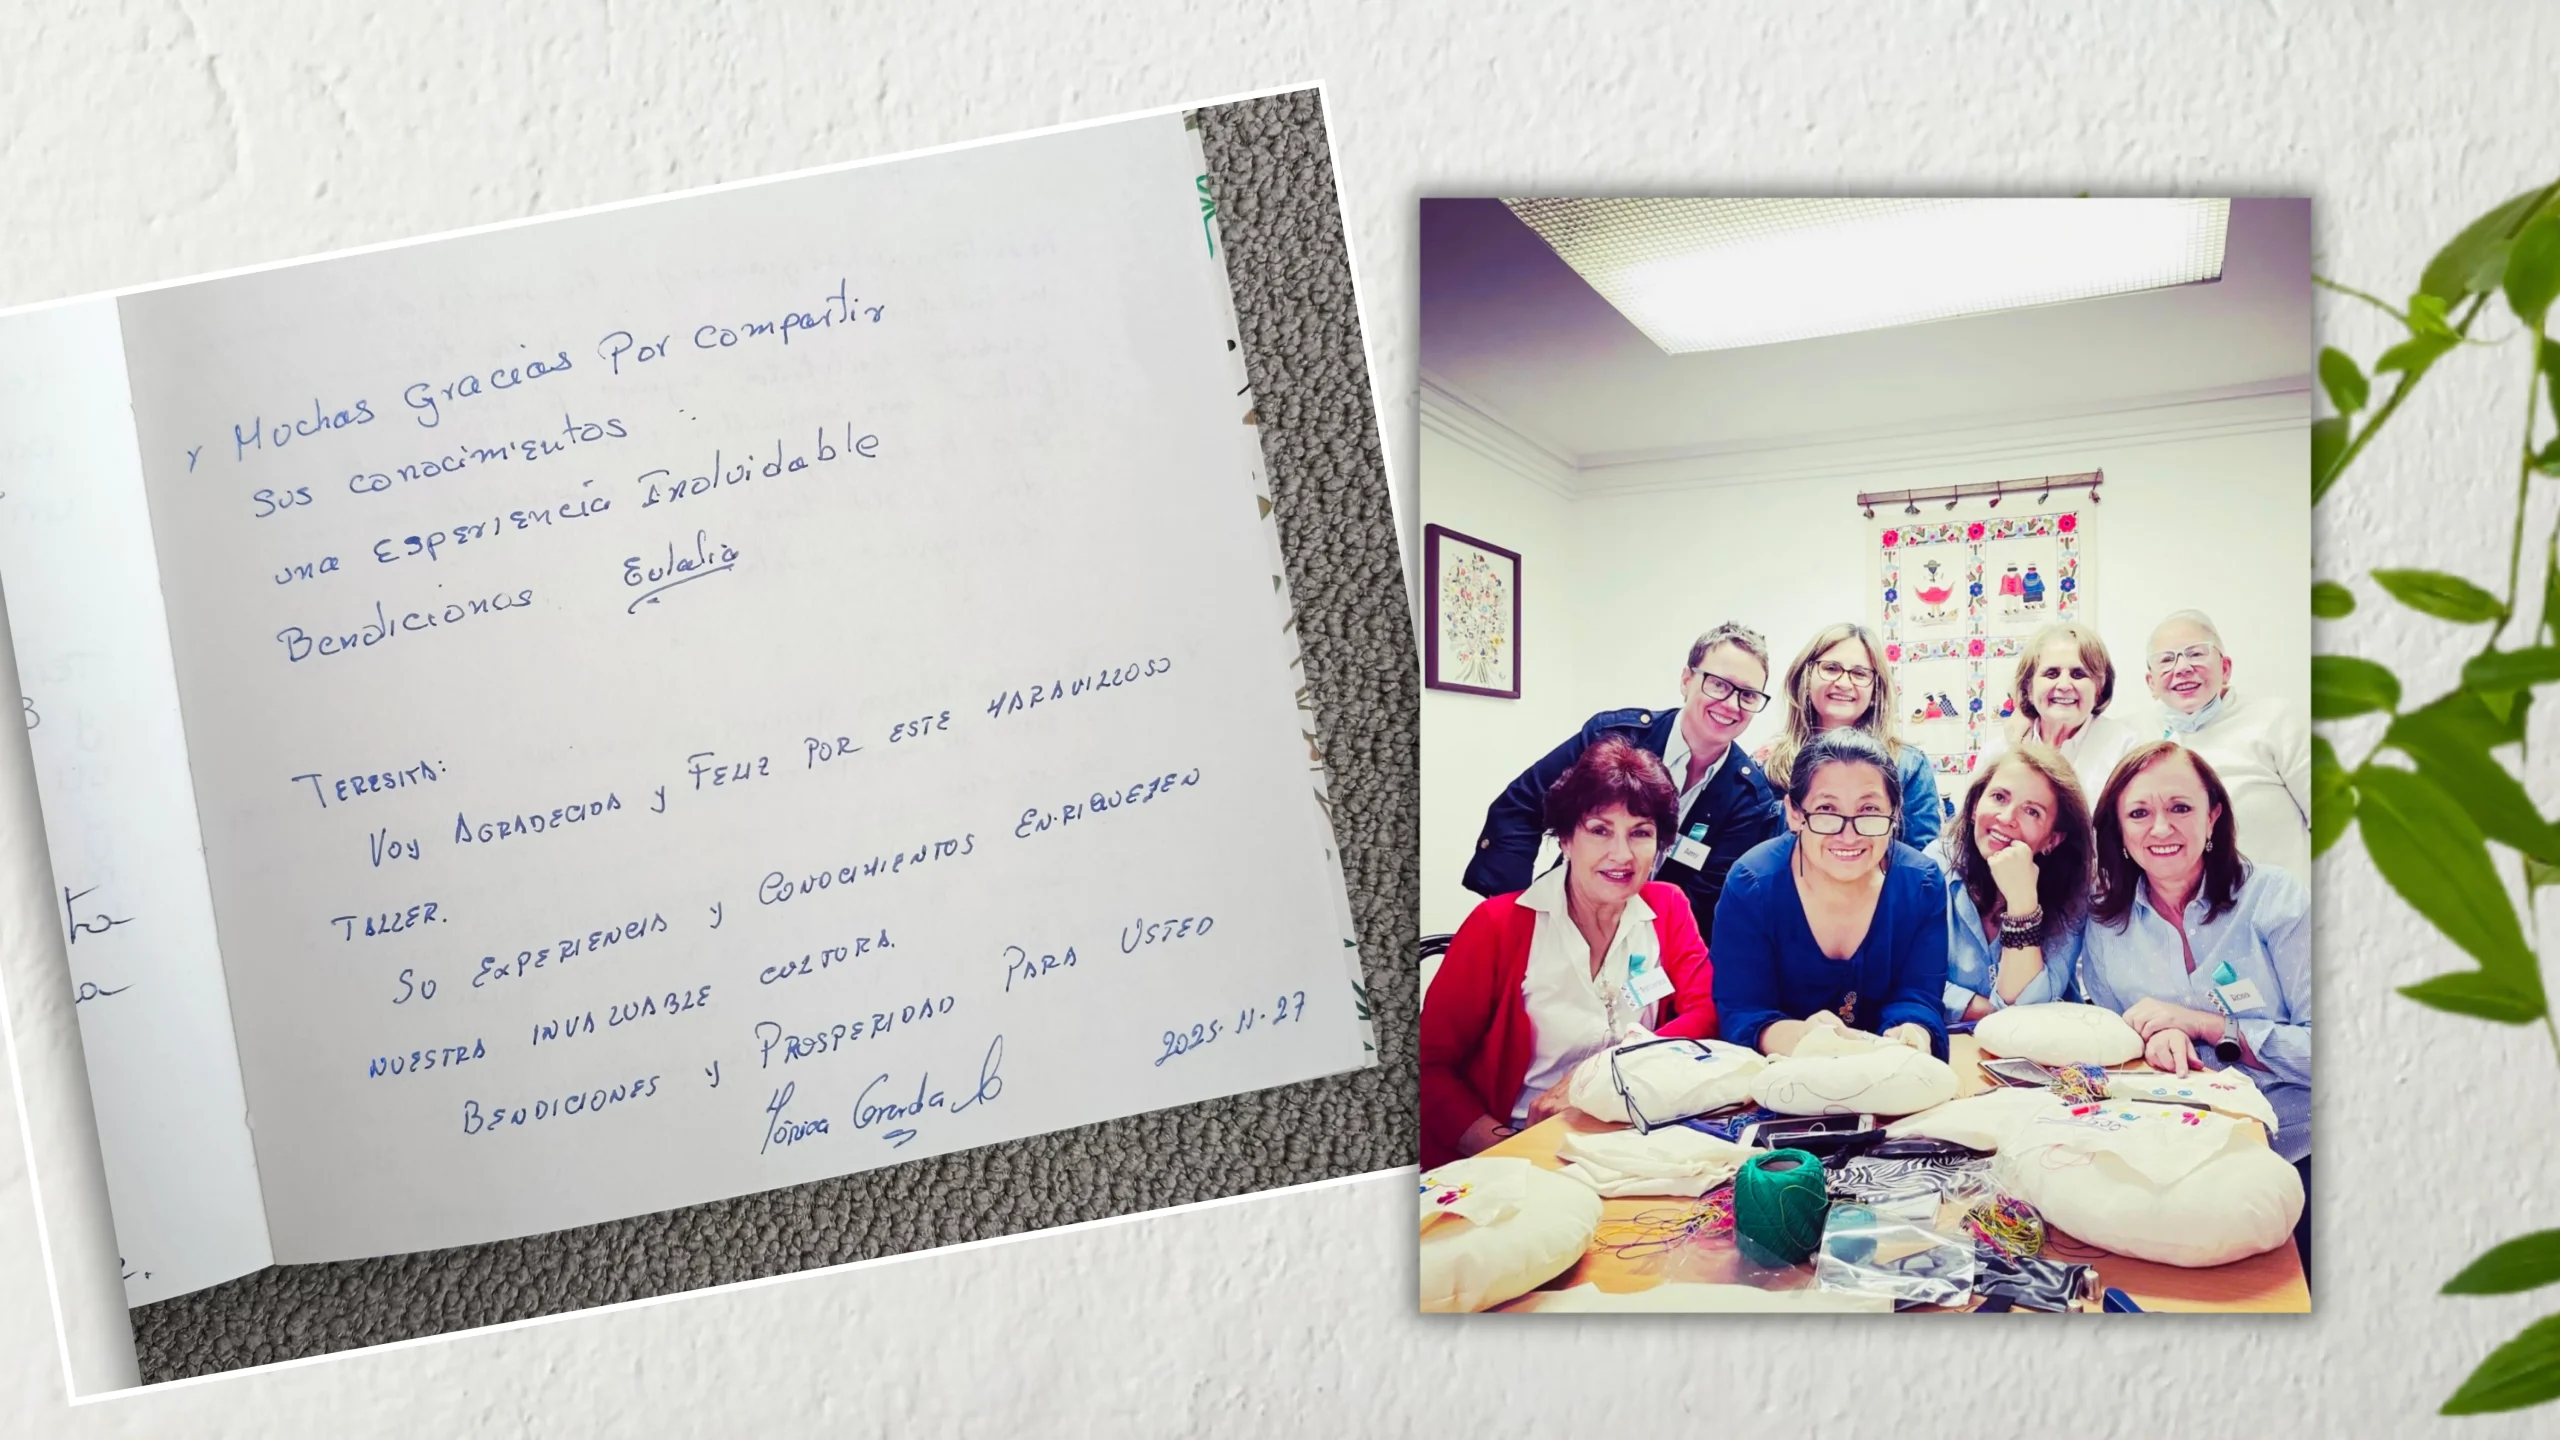 Muchas Gracias Por compartir
sus conocimientos
una Esperiencia Inolvidable
Bendiciones Eulalia
TERESITA:
VOY AGRADECIDA Y FELIZ POR ESTE MARAVILLOSO
TALLER.
SU EXPERIENCIA Y CONOCIMIENTOS ENRIQUEZEN
NUESTRA INVALUABLE CULTURA.
BENDICIONES Y PROSPERIDAD PARA USTED
Mónica
2025.11.27